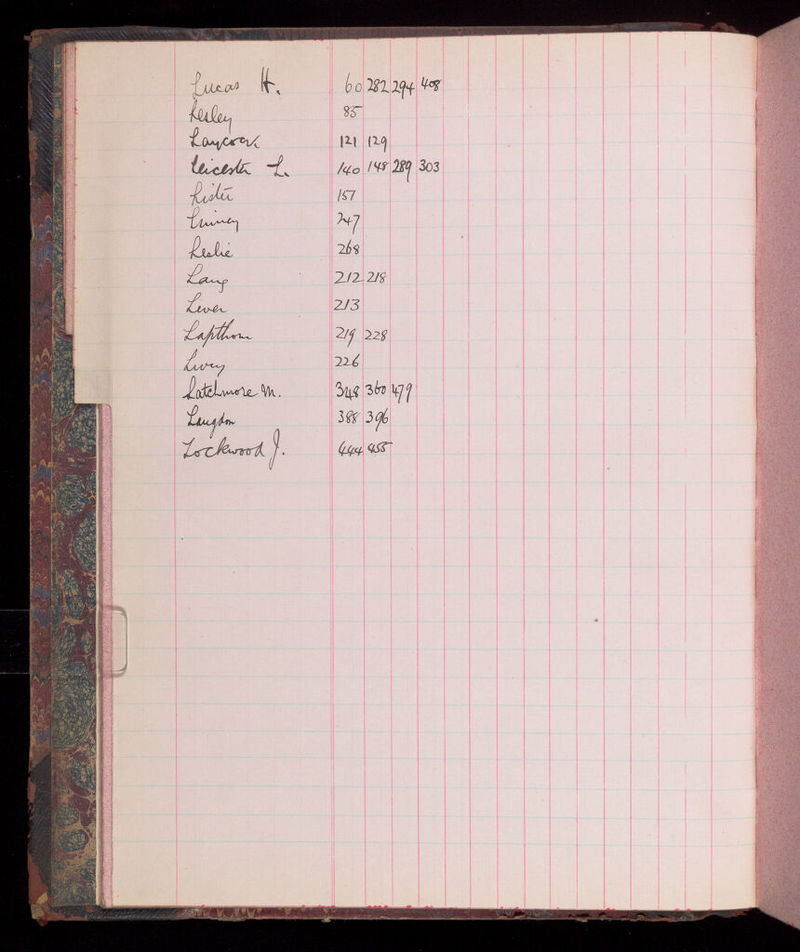 Lucas H. 60 282 294 408
Lesley 85
Laycock 121 129
Leicester L. 140 148 289 303
Lister 157
247
Leslie 268
Lang 212 218
Lever 213
Lapthorn 219 228
Livry 226
Latchmore M. 348 360 479
Langdon 388 396
Lockwood J. 444 455